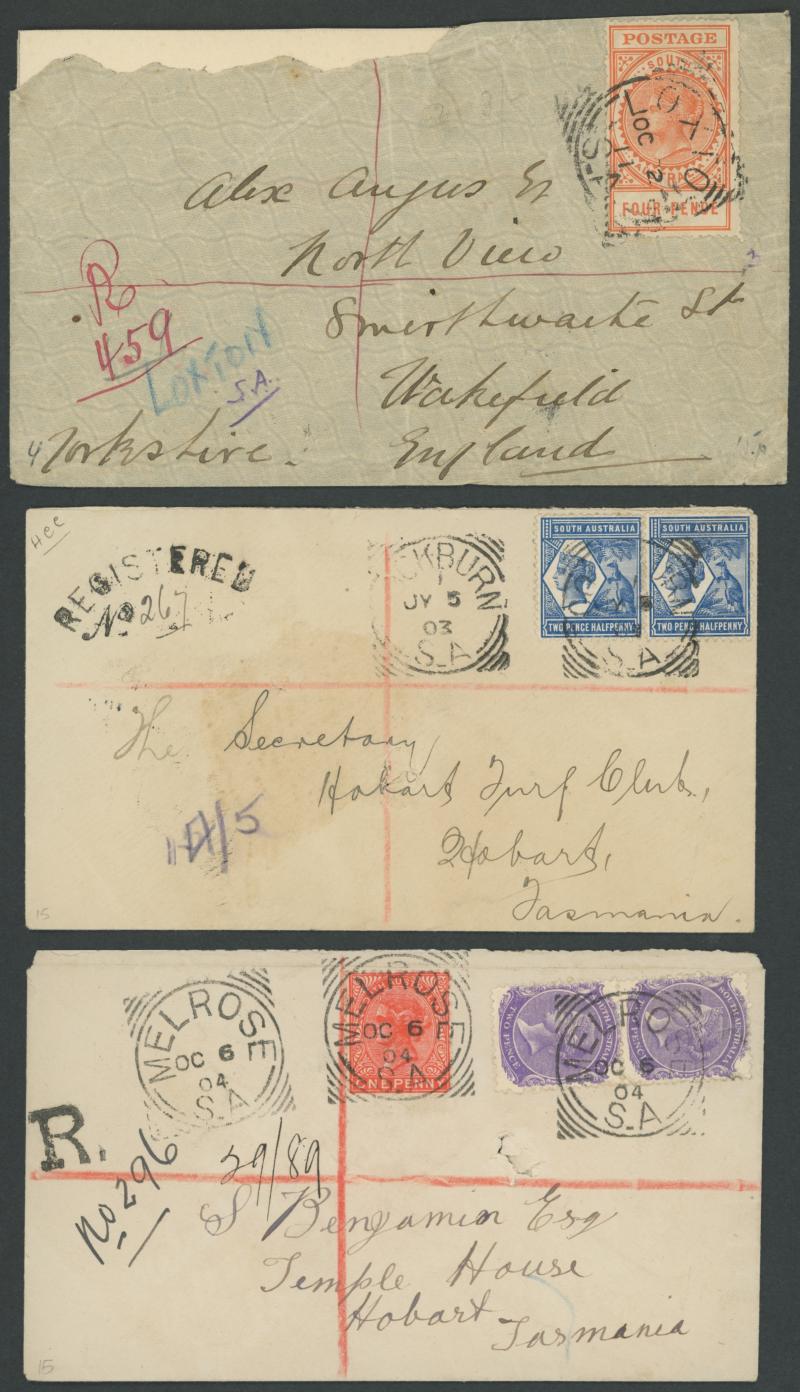 POSTAGE
SOUTH
LOXTON
OC 2
11
S.A
FOUR PENCE
Alex Angus Esq
North View
Smirthwaite St
Wakefield
Yorkshire.
England
R
459
LOXTON
S.A.
HCC
REGISTERED
No 267
CKBURN
1
JY 5
03
S.A
SOUTH AUSTRALIA
TWO PENCE HALFPENNY
SOUTH AUSTRALIA
TWO PENCE HALFPENNY
S.A
The Secretary
Hobart Turf Club,
Hobart,
Tasmania.
15
MELROSE
OC 6
04
S.A
MELROSE
OC 6
04
S.A
ONE PENNY
TWO PENCE
SOUTH AUSTRALIA
MELROSE
OC 6
04
S.A
R.
No 296
29/89
S Benjamin Esq
Temple House
Hobart
Tasmania
15